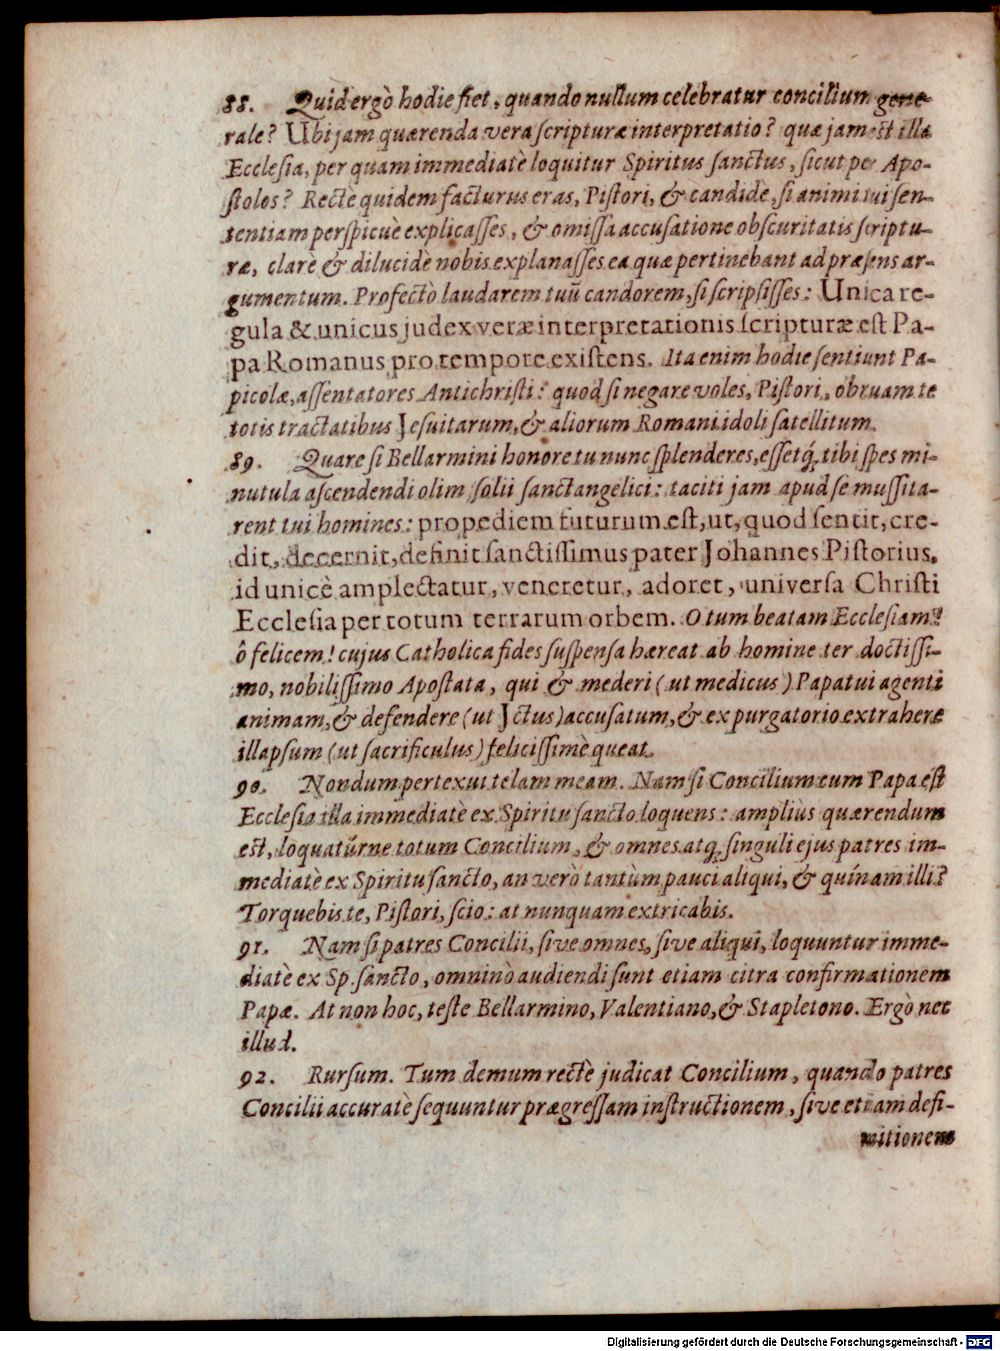 88. Quid ergò hodie fiet, quando nullum celebratur concilium gene-
rale? Ubi jam quærenda vera scripturæ interpretatio? quæ jam est illa
Ecclesia, per quam immediatè loquitur Spiritus sanctus, sicut per Apo-
stolos? Rectè quidem facturus eras, Pistori, & candidè, si animi tui sen-
tentiam perspicuè explicasses, & omissa accusatione obscuritatis scriptu-
ræ, clarè & dilucidè nobis explanasses ea quæ pertinebant ad præsens ar-
gumentum. Profectò laudarem tuū candorem, si scripsisses: Unica re-
gula & unicus judex veræ interpretationis scripturæ est Pa-
pa Romanus pro tempore existens. Ita enim hodie sentiunt Pa-
picolæ, assentatores Antichristi: quod si negare voles, Pistori, obruam te
totis tractatibus Jesuitarum, & aliorum Romani idoli satellitum.
89. Quare si Bellarmini honore tu nunc splenderes, essetq́; tibi spes mi-
nutula ascendendi olim solii sanctangelici: taciti jam apud se mussita-
rent tui homines: propediem futurum est, ut, quod sentit, cre-
dit, decernit, definit sanctissimus pater Johannes Pistorius,
id unicè amplectatur, veneretur, adoret, universa Christi
Ecclesia per totum terrarum orbem. O tum beatam Ecclesiam!
ô felicem! cujus Catholica fides suspensa hæreat ab homine ter doctissi-
mo, nobilissimo Apostata, qui & mederi (ut medicus) Papatui agenti
animam, & defendere (ut Jctus) accusatum, & ex purgatorio extrahere
illapsum (ut sacrificulus) felicissimè queat.
90. Nondum pertexui telam meam. Nam si Concilium cum Papa est
Ecclesia illa immediatè ex Spiritu sancto loquens: ampliùs quærendum
est, loquatúrne totum Concilium, & omnes atq́; singuli ejus patres im-
mediatè ex Spiritu sancto, an verò tantùm pauci aliqui, & quínam illi?
Torquebis te, Pistori, scio: at nunquam extricabis.
91. Nam si patres Concilii, sive omnes, sive aliqui, loquuntur imme-
diatè ex Sp. sancto, omninò audiendi sunt etiam citra confirmationem
Papæ. At non hoc, teste Bellarmino, Valentiano, & Stapletono. Ergò nec
illud.
92. Rursum. Tum demum rectè judicat Concilium, quando patres
Concilii accuratè sequuntur prægressam instructionem, sive etiam defi-
nitionem
Digitalisierung gefördert durch die Deutsche Forschungsgemeinschaft - DFG